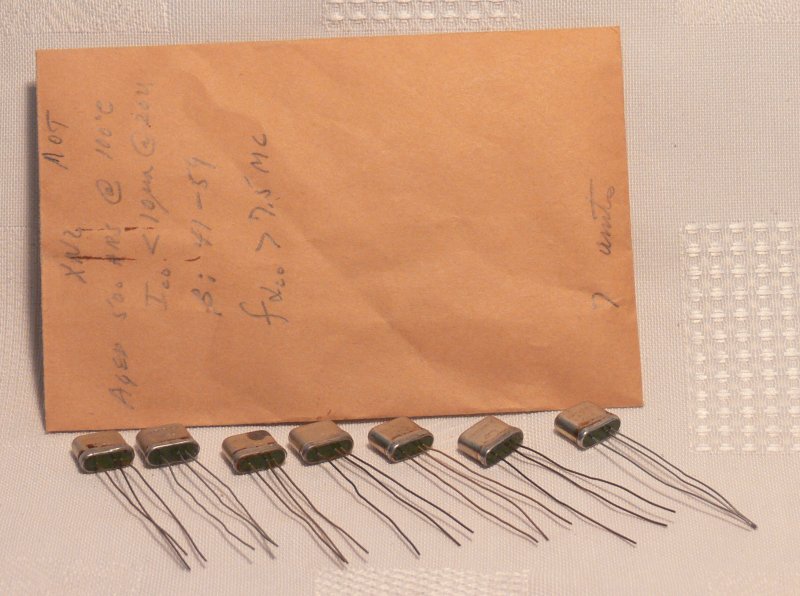 XN2 MOT
Aged 500 HRS @ 100°C
Ico < 10 µa @ 20V
B: 41-59
fαco > 7.5 MC
7 units